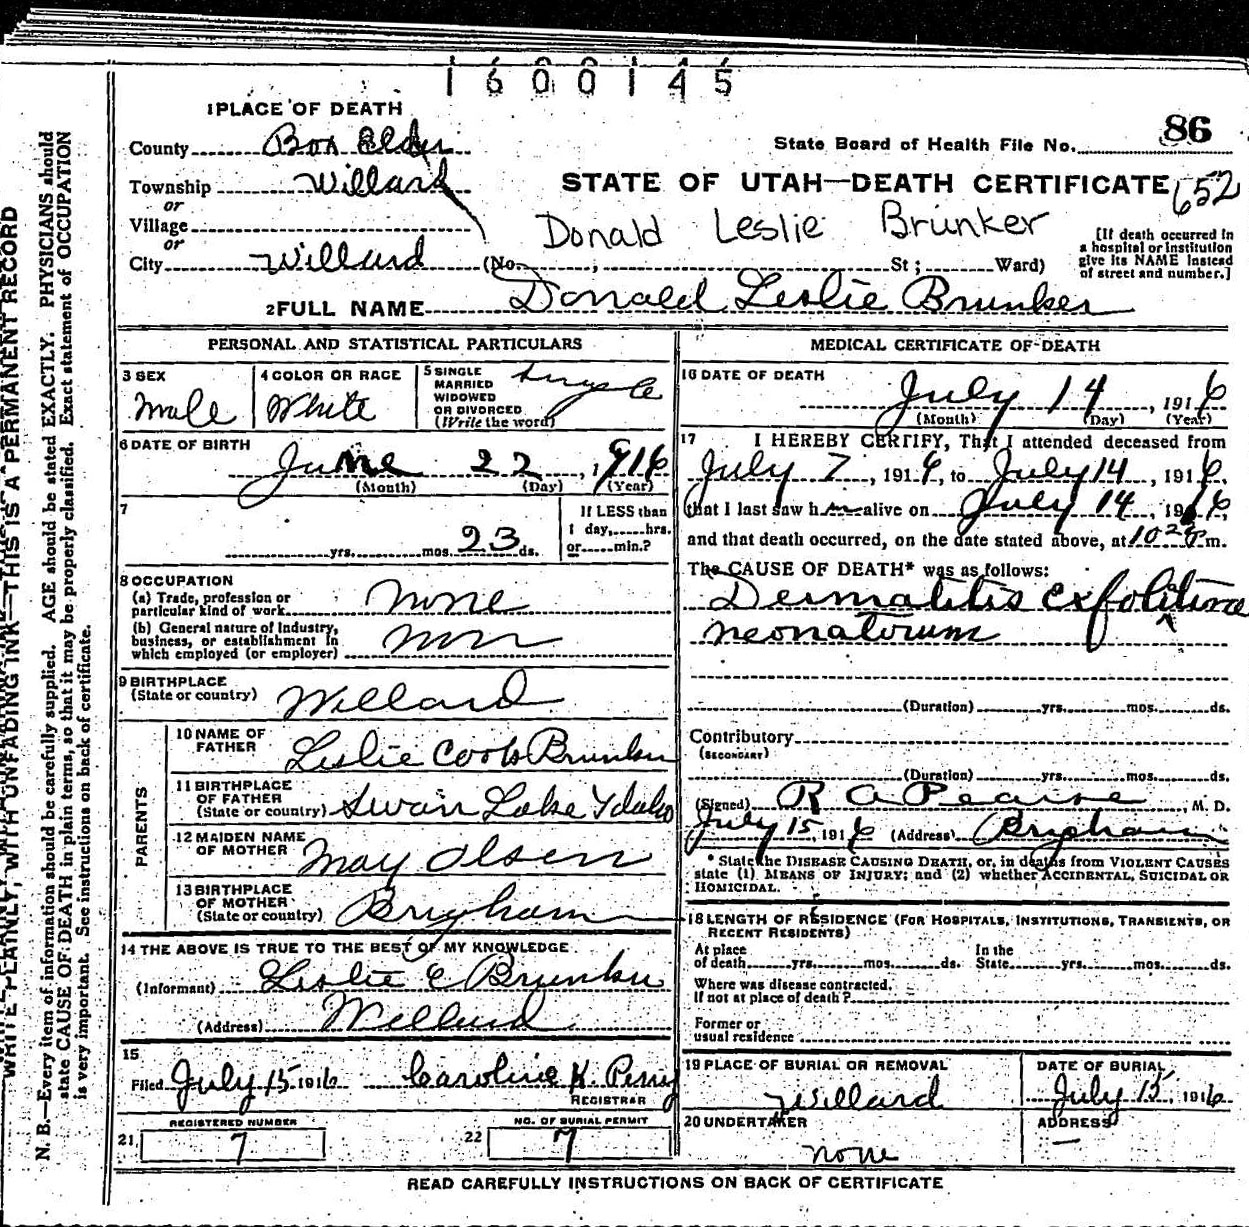 1600145
1 PLACE OF DEATH
86
County Box Elder
State Board of Health File No.
Township Willard
STATE OF UTAH—DEATH CERTIFICATE 652
or
Village
Donald Leslie Brunker
or
[If death occurred in
a hospital or institution
give its NAME instead
of street and number.]
City Willard (No. , St ; Ward)
2 FULL NAME Donald Leslie Brunker
PERSONAL AND STATISTICAL PARTICULARS
3 SEX
Male
4 COLOR OR RACE
White
5 SINGLE
MARRIED
WIDOWED
OR DIVORCED
(Write the word)
Single
6 DATE OF BIRTH
June 22, 1916
(Month) (Day) (Year)
7
yrs. mos. 23 ds.
If LESS than
1 day, hrs.
or min.?
8 OCCUPATION
(a) Trade, profession or
particular kind of work None
(b) General nature of Industry,
business, or establishment in
which employed (or employer) non
9 BIRTHPLACE
(State or country) Willard
PARENTS
10 NAME OF
FATHER Leslie Cook Brunker
11 BIRTHPLACE
OF FATHER
(State or country) Swan Lake Idaho
12 MAIDEN NAME
OF MOTHER May Olsen
13 BIRTHPLACE
OF MOTHER
(State or country) Brigham
14 THE ABOVE IS TRUE TO THE BEST OF MY KNOWLEDGE
(Informant) Leslie C Brunker
(Address) Willard
15
Filed July 15 1916 Caroline K. Perry
REGISTRAR
REGISTERED NUMBER
21 7
NO. OF BURIAL PERMIT
22 7
MEDICAL CERTIFICATE OF DEATH
16 DATE OF DEATH
July 14, 1916
(Month) (Day) (Year)
17 I HEREBY CERTIFY, That I attended deceased from
July 7, 1916, to July 14, 1916,
that I last saw h m alive on July 14, 1916,
and that death occurred, on the date stated above, at m.
The CAUSE OF DEATH* was as follows:
Dermatitis exfolitiva
neonatorum
(Duration) yrs. mos. ds.
Contributory
(SECONDARY)
(Duration) yrs. mos. ds.
(Signed) R A Pearse, M. D.
July 15, 1916 (Address) Brigham
* State the DISEASE CAUSING DEATH, or, in deaths from VIOLENT CAUSES
state (1) MEANS OF INJURY; and (2) whether ACCIDENTAL, SUICIDAL OR
HOMICIDAL.
18 LENGTH OF RESIDENCE (FOR HOSPITALS, INSTITUTIONS, TRANSIENTS, OR
RECENT RESIDENTS)
At place
of death yrs. mos. ds.
In the
State yrs. mos. ds.
Where was disease contracted.
If not at place of death?
Former or
usual residence
19 PLACE OF BURIAL OR REMOVAL
Willard
DATE OF BURIAL
July 15, 1916
20 UNDERTAKER
none
ADDRESS
—
READ CAREFULLY INSTRUCTIONS ON BACK OF CERTIFICATE
WRITE PLAINLY, WITH UNFADING INK—THIS IS A PERMANENT RECORD
N. B.—Every item of information should be carefully supplied. AGE should be stated EXACTLY. PHYSICIANS should
state CAUSE OF DEATH in plain terms, so that it may be properly classified. Exact statement of OCCUPATION
is very important. See instructions on back of certificate.